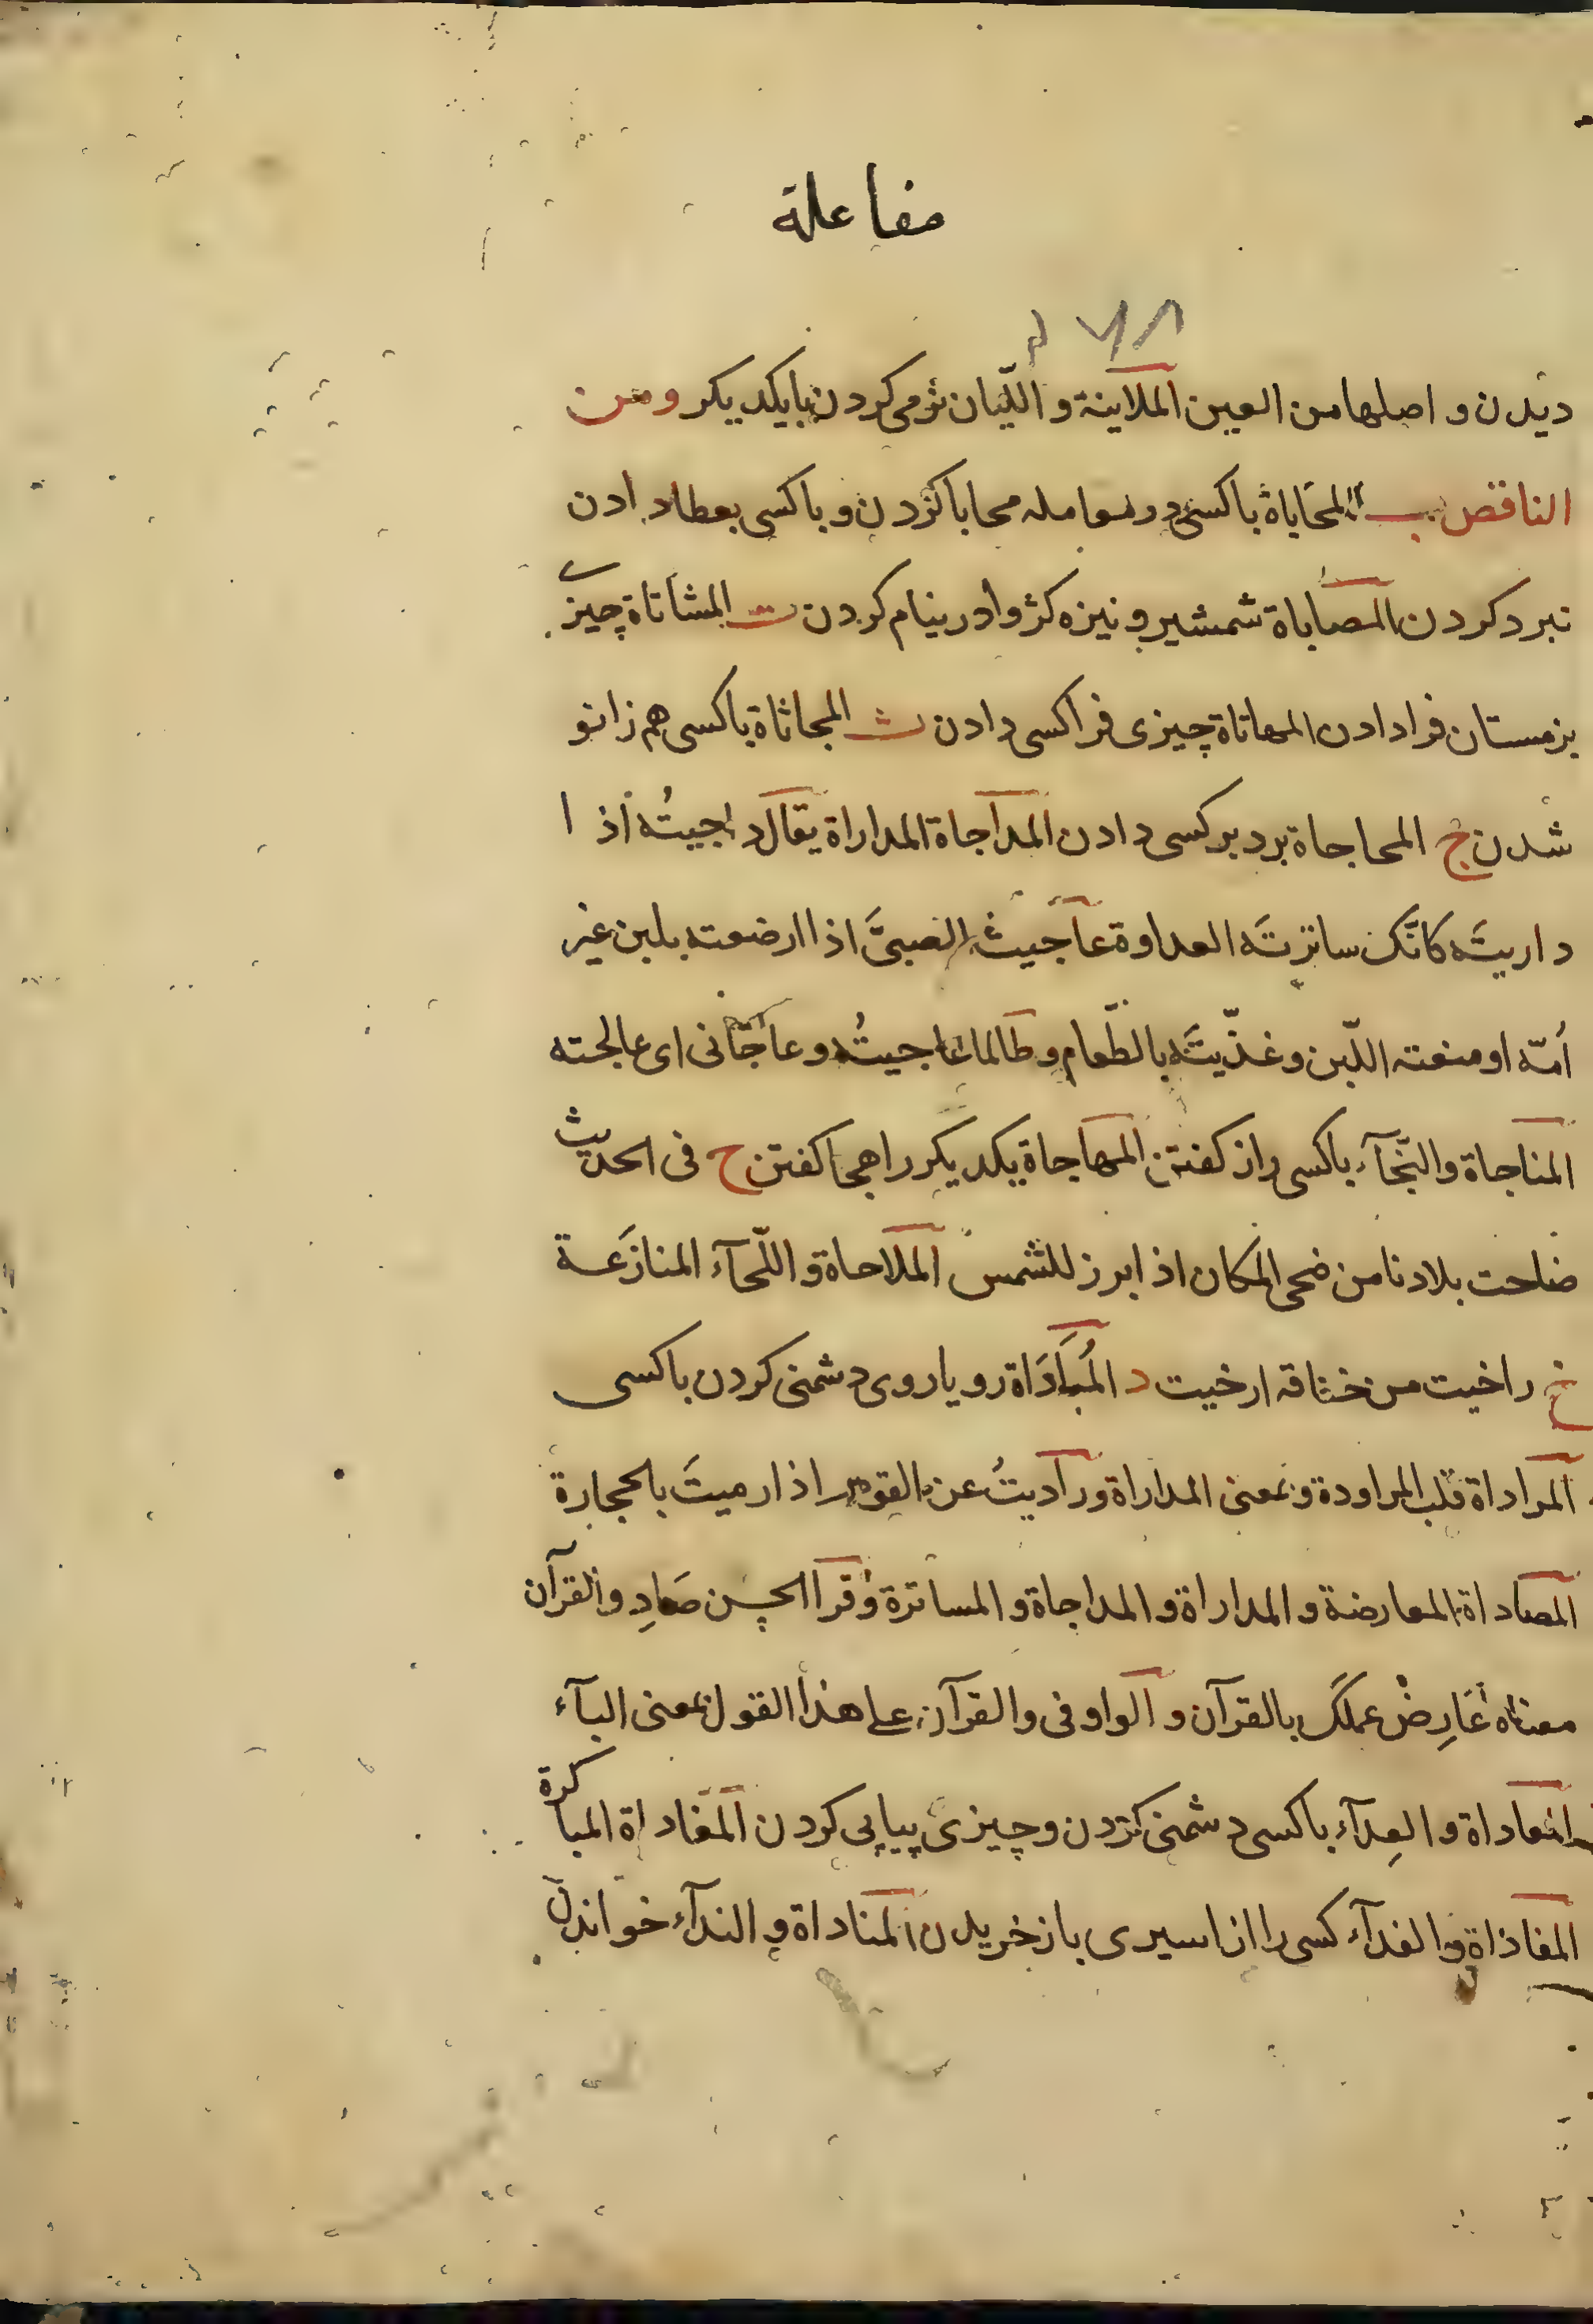 مفاعلة
۷۸
دیدن و اصلها من العین الملاینة و اللّیان نرمی کردن بایکدیکر و من
الناقص ب المحاباة باکسی در معامله محابا کردن و باکسی بعطا دادن
نبرد کردن المصاباة شمشیر و نیزه کژ وا در نیام کردن ت المشاتاة چیزی
بزمستان فرا دادن المهاتاة چیزی فرا کسی دادن ث المجاثاة باکسی هم زانو
شدن ج المحاجاة برد بر کسی دادن المداجاة المداراة یقال داجیتُه اذا
داریتَه کانّک ساترتَه العداوة عاجیتُ الصبیَّ اذا ارضعته بلبن غیر
اُمّه او منعته اللّبن و غذّیتَه بالطّعام و طالما عاجیتُه و عاجانی ای عالجته
المناجاة والنّجآء باکسی راز کفتن المهاجاة یکدیکر را هجا کفتن ح فی الحدیث
ضاحت بلادنا من ضحی المکان اذ ابرز للشمس الملاحاة و اللّحآء المنازَعة
خ راخیت من خناقه ارخیت د المُبَادَاة رویاروی دشمنی کردن باکسی
المراداة قلب المراودة و بمعنی المداراة و رادیتُ عن القوم اذا رمیتَ بالحجارة
المصاداة المعارضة و المداراة و المداجاة و المساترة و قرا الحسن صَادِ والقرآن
معناه عَارِضْ عملَکَ بالقرآن و الواو فی والقرآن علی هذا القول بمعنی البآء
المعاداة و العِدآء باکسی دشمنی کردن و چیزی پیاپی کردن المغاداة المباکرة
المفاداة و الفدآء کسی را از اسیری باز خریدن المناداة و الندآء خواندن